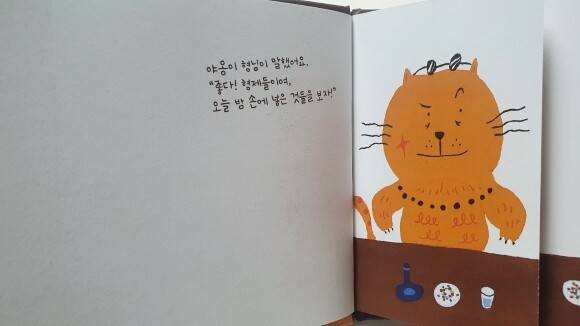 야옹이 형님이 말했어요.
"좋다! 형제들이여,
오늘 밤 손에 넣은 것들을 보자!"